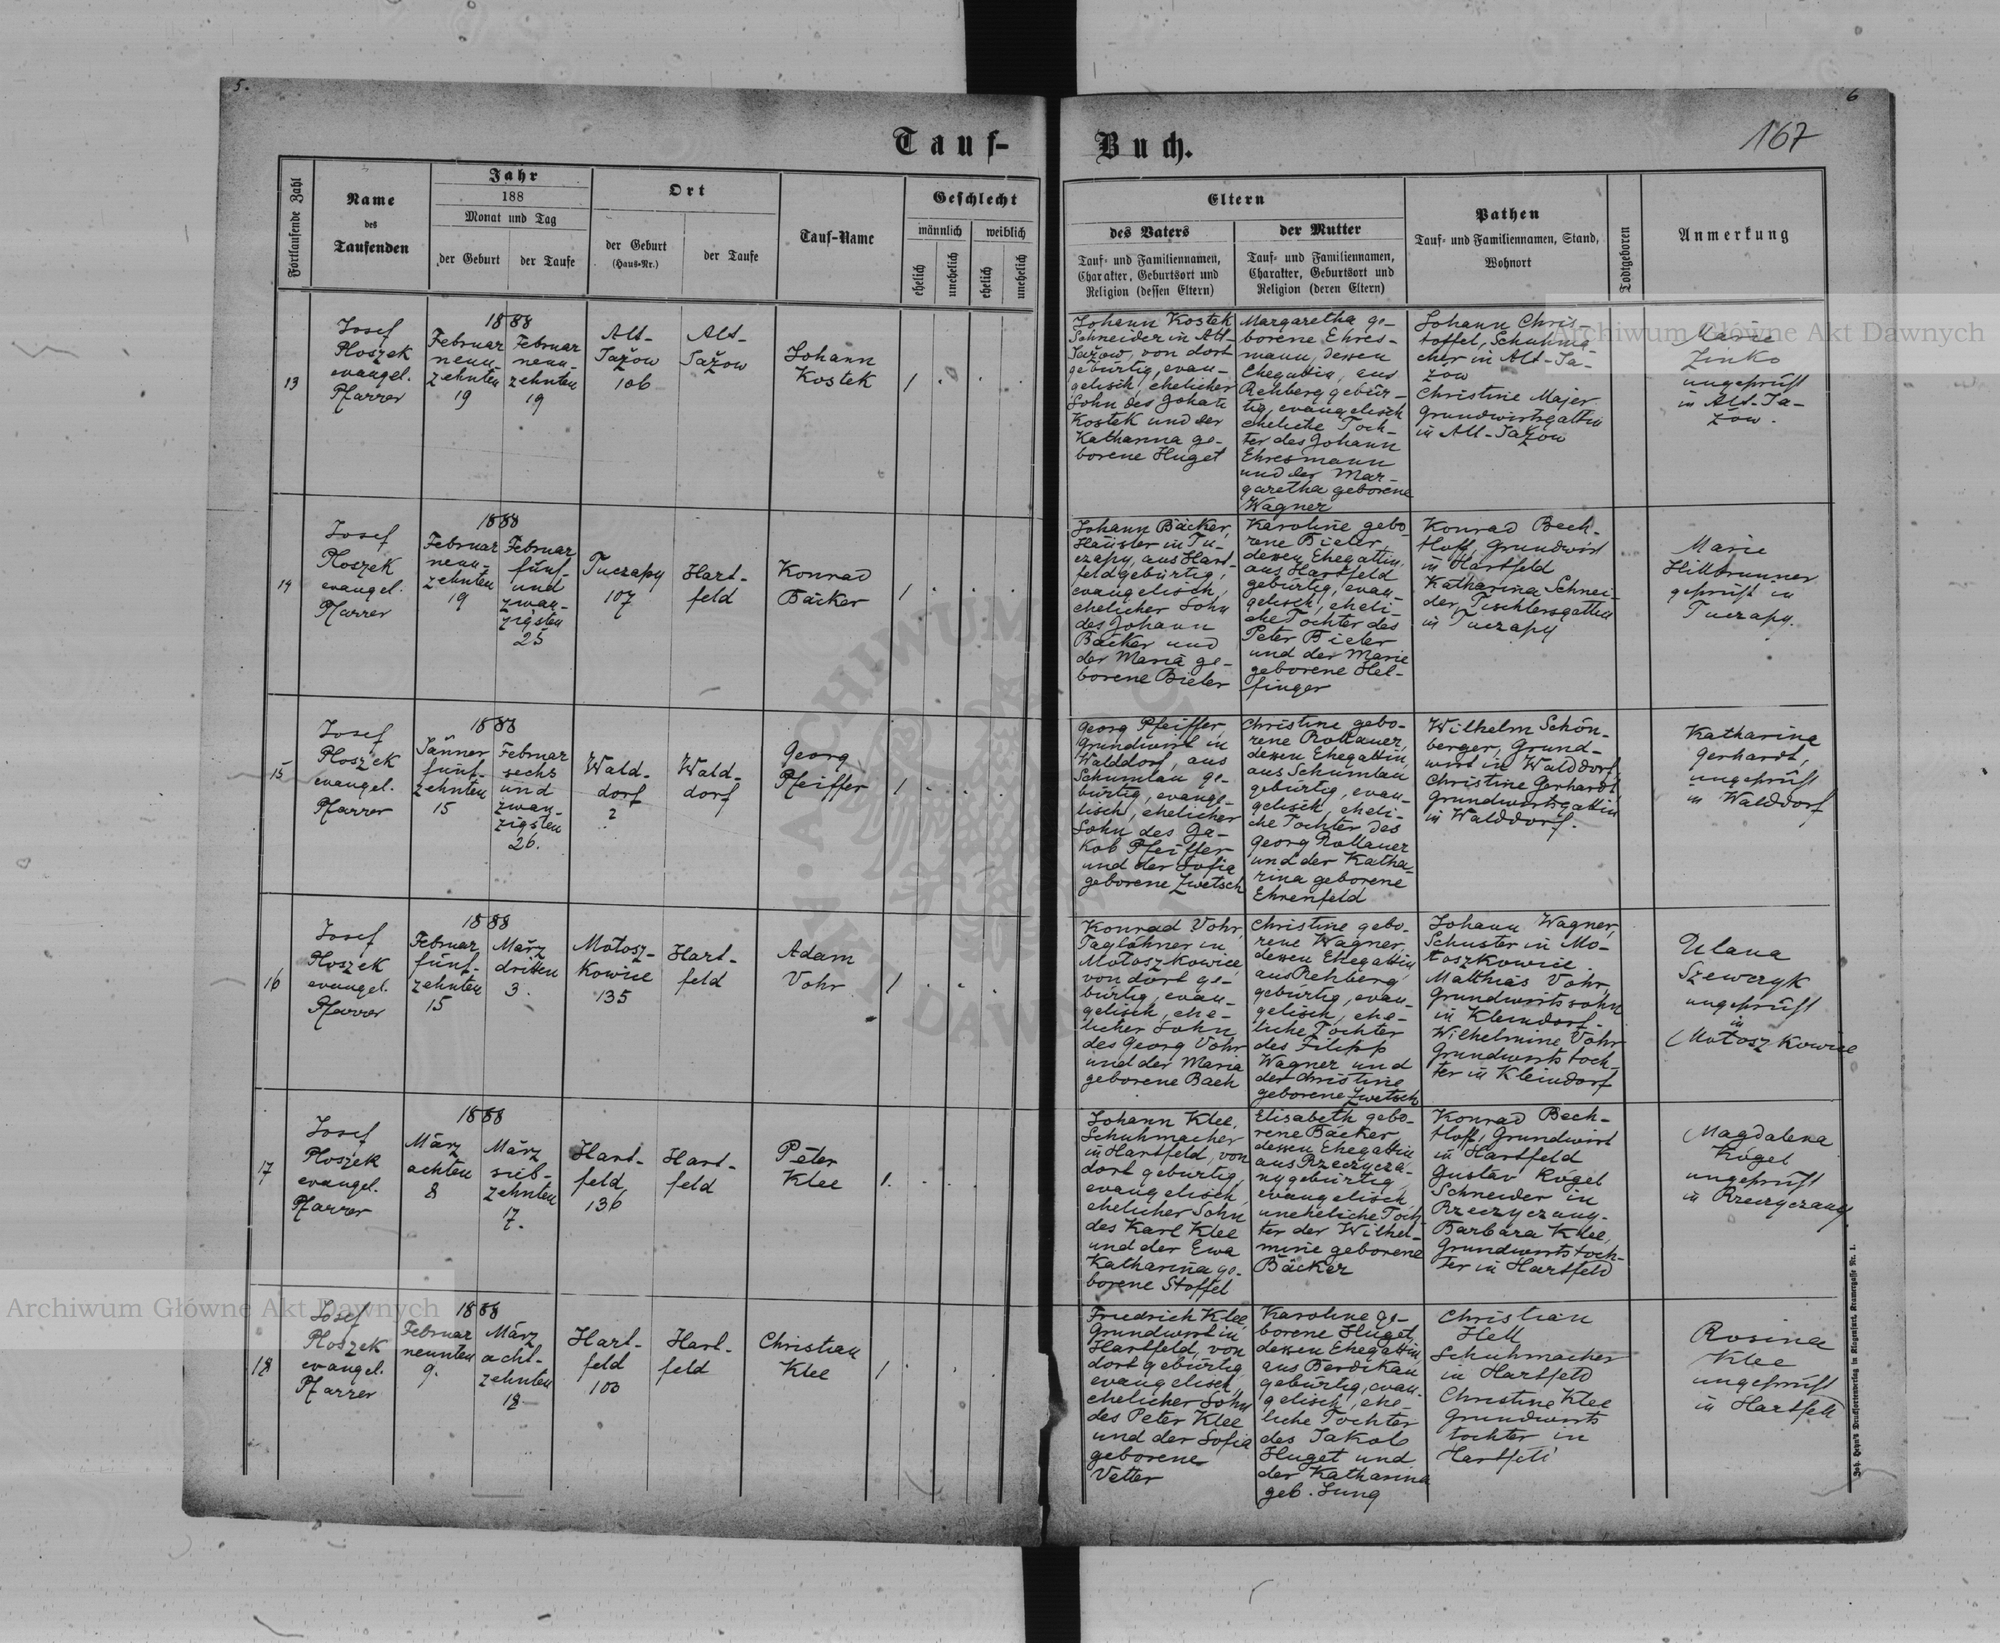 5.
6
167
Tauf-
Buch.
Fortlaufende Zahl
Name
des
Taufenden
Jahr
188
Monat und Tag
der Geburt
der Taufe
Ort
der Geburt
(Haus-Nr.)
der Taufe
Tauf-Name
Geschlecht
männlich
weiblich
ehelich
unehelich
ehelich
unehelich
Eltern
des Vaters
Tauf- und Familiennamen,
Charakter, Geburtsort und
Religion (dessen Eltern)
der Mutter
Tauf- und Familiennamen,
Charakter, Geburtsort und
Religion (deren Eltern)
Pathen
Tauf- und Familiennamen, Stand,
Wohnort
Todtgeboren
Anmerkung
13
Josef
Ploszek
evangel.
Pfarrer
1888
Februar
neun-
zehnten
19
Februar
neun-
zehnten
19
Alt-
Jažow
106
Alt-
Jažow
Johann
Kostek
1
Johann Kostek
Schneider in Alt-
Jažow, von dort
gebürtig, evan-
gelisch, ehelicher
Sohn des Johann
Kostek und der
Katharina ge-
borene Huget
Margaretha ge-
borene Ehres-
mann, dessen
Ehegattin, aus
Rehberg gebür-
tig, evangelisch
eheliche Toch-
ter des Johann
Ehresmann
und der Mar-
garetha geborene
Wagner
Johann Chris-
toffel, Schuhma-
cher in Alt-Ja-
zow
Christine Majer
Grundwirtsgattin
in Alt-Jažow
Marie
Zinko
ungeprüft
in Alt-Ja-
zow.
14
Josef
Ploszek
evangel.
Pfarrer
1888
Februar
neun-
zehnten
19
Februar
fünf-
und
zwan-
zigsten
25
Tuczapy
107
Hart-
feld
Konrad
Bäcker
1
Johann Bäcker,
Häusler in Tu-
czapy, aus Hart-
feld gebürtig,
evangelisch,
ehelicher Sohn
des Johann
Bäcker und
der Maria ge-
borene Bieler
Karoline gebo-
rene Bieler,
dessen Ehegattin,
aus Hartfeld
gebürtig, evan-
gelisch, eheli-
che Tochter des
Peter Bieler
und der Marie
geborene Hel-
finger
Konrad Bech-
tloff, Grundwirt
in Hartfeld
Katharina Schnei-
der, Tischlersgattin
in Tuczapy
Marie
Hillbrunner
geprüft in
Tuczapy.
15
Josef
Ploszek
evangel.
Pfarrer
1888
Jänner
fünf-
zehnten
15
Februar
sechs
und
zwan-
zigsten
26.
Wald-
dorf
2
Wald-
dorf
Georg
Pfeiffer
1
Georg Pfeiffer
Grundwirt in
Walddorf, aus
Schumlau ge-
bürtig, evange-
lisch, ehelicher
Sohn des Ja-
kob Pfeiffer
und der Sofia
geborene Zwetsch
Christine gebo-
rene Rollauer,
dessen Ehegattin,
aus Schumlau
gebürtig, evan-
gelisch, eheli-
che Tochter des
Georg Rollauer
und der Katha-
rina geborene
Ehrenfeld
Wilhelm Schön-
berger, Grund-
wirt in Walddorf,
Christine Gerhardt
Grundwirtsgattin
in Walddorf.
Katharina
Gerhardt,
ungeprüft
in Walddorf
16
Josef
Ploszek
evangel.
Pfarrer
1888
Februar
fünf-
zehnten
15
März
dritten
3.
Mołosz-
kowice
135
Hart-
feld
Adam
Vohr
1
Konrad Vohr,
Taglöhner in
Mołoszkowice,
von dort ge-
bürtig, evan-
gelisch, ehe-
licher Sohn
des Georg Vohr
und der Maria
geborene Bach
Christine gebo-
rene Wagner,
dessen Ehegattin
aus Rehberg
gebürtig, evan-
gelisch, ehe-
liche Tochter
des Filipp
Wagner und
der Christine
geborene Zwetsch
Johann Wagner,
Schuster in Mo-
łoszkowice
Matthias Vohr,
Grundwirtssohn
in Kleindorf.
Wilhelmine Vohr
Grundwirtstoch-
ter in Kleindorf
Ulana
Szewczyk
ungeprüft
in
Mołoszkowice
17
Josef
Ploszek
evangel.
Pfarrer
1888
März
achten
8
März
sieb-
zehnten
17.
Hart-
feld
136
Hart-
feld
Peter
Klee
1.
Johann Klee,
Schuhmacher
in Hartfeld, von
dort gebürtig,
evangelisch
ehelicher Sohn
des Karl Klee
und der Ewa
Katharina ge-
borene Stoffel
Elisabeth gebo-
rene Bäcker
dessen Ehegattin
aus Rzeczycza-
ny gebürtig
evangelisch,
uneheliche Toch-
ter der Wilhel-
mine geborene
Bäcker
Konrad Bech-
tloff, Grundwirt
in Hartfeld
Gustav Kögel
Schneider in
Rzeczyczany.
Barbara Klee,
Grundwirtstoch-
ter in Hartfeld
Magdalena
Kögel
ungeprüft
in Rzeczyczany
18
Josef
Ploszek
evangel.
Pfarrer
1888
Februar
neunten
9.
März
acht-
zehnten
18
Hart-
feld
100
Hart-
feld
Christian
Klee
1
Friedrich Klee,
Grundwirt in
Hartfeld, von
dort gebürtig
evangelisch,
ehelicher Sohn
des Peter Klee
und der Sofia
geborene
Vetter
Karoline ge-
borene Huget,
dessen Ehegattin,
aus Berdikau
gebürtig, evan-
gelisch, ehe-
liche Tochter
des Jakob
Huget und
der Katharina
geb. Jung
Christian
Hell
Schuhmacher
in Hartfeld
Christine Klee
Grundwirts
tochter in
Hartfeld
Rosina
Klee
ungeprüft
in Hartfeld
Joh. Heyn's Drucksortenverlag in Klagenfurt, Kramergasse Nr. 1.
Archiwum Główne Akt Dawnych
Archiwum Główne Akt Dawnych